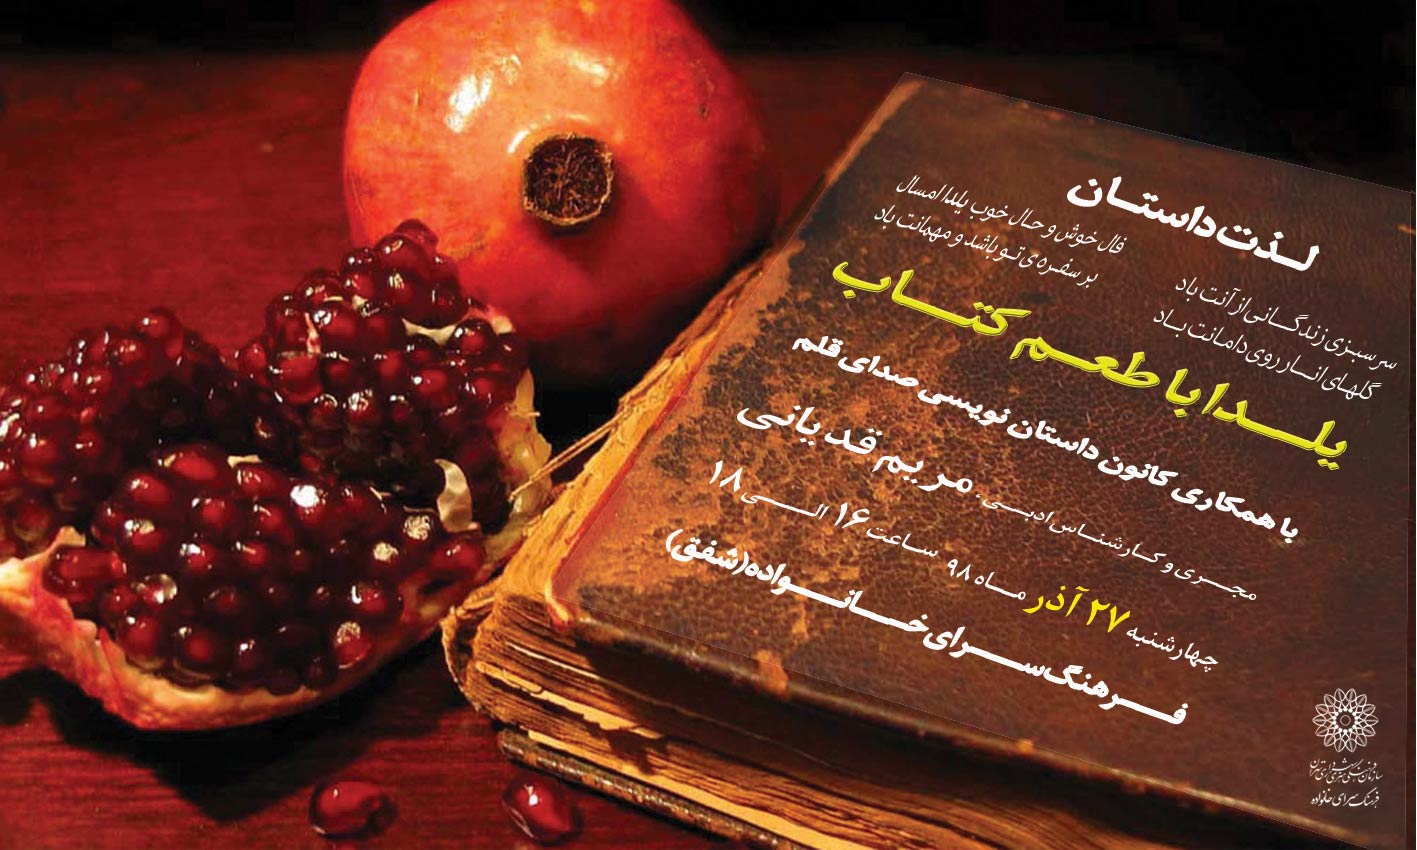 لذت داستان
سر سبزی زندگانی از آنت باد
گلهای انار روی دامانت باد
فال خوش و حال خوب یلدا امسال
بر سفره ی تو باشد و مهمانت باد
یلدا با طعم کتاب
با همکاری کانون داستان نویسی صدای قلم
مجری و کارشناس ادبی، مریم قدیانی
چهارشنبه ۲۷ آذر ماه ۹۸ ساعت ۱۶ الی ۱۸
فرهنگسرای خانواده(شفق)
سازمان فرهنگی هنری شهرداری تهران
فرهنگسرای خانواده